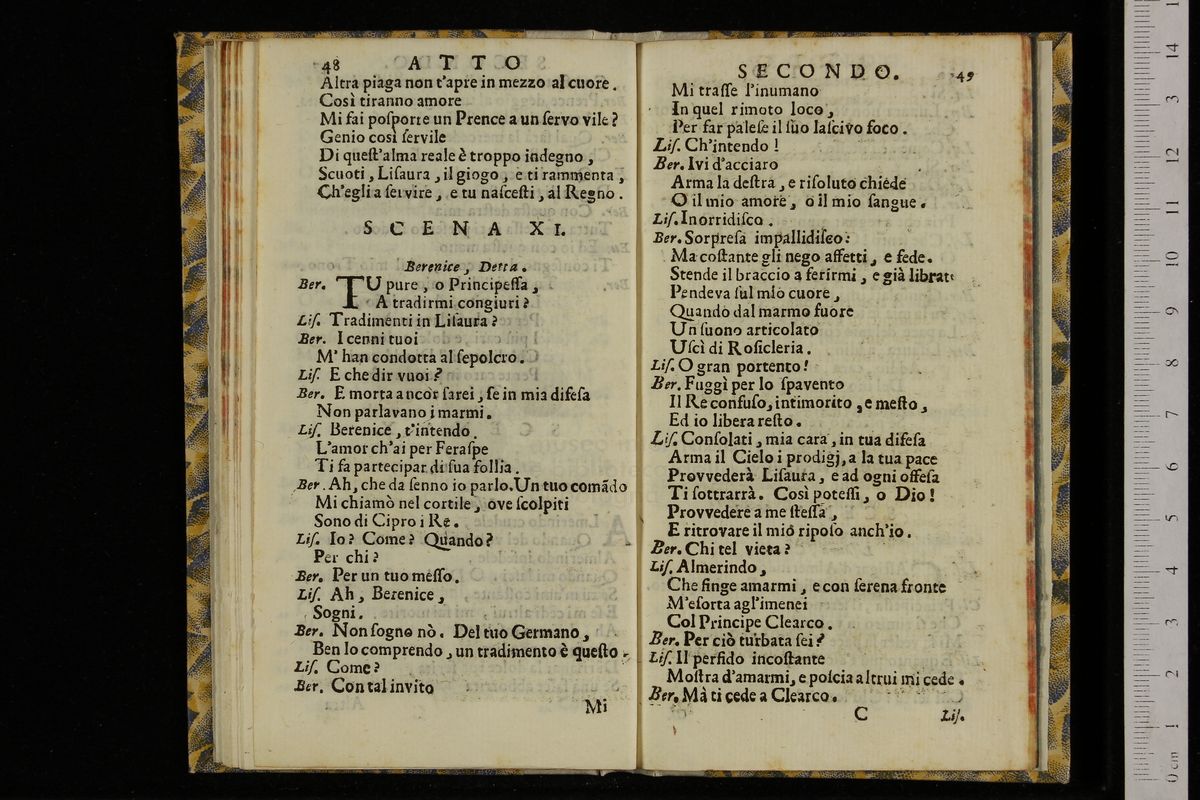 48 ATTO
Altra piaga non t'apre in mezzo al cuore.
Così tiranno amore
Mi fai poſporre un Prence a un ſervo vile?
Genio così ſervile
Di queſt'alma reale è troppo indegno,
Scuoti, Liſaura, il giogo, e ti rammenta,
Ch'egli a ſervire, e tu naſceſti, al Regno.
SCENA XI.
Berenice, Detta.
Ber. TU pure, o Principeſſa,
A tradirmi congiuri?
Liſ. Tradimenti in Liſaura?
Ber. I cenni tuoi
M' han condotta al ſepolcro.
Liſ. E che dir vuoi?
Ber. E morta ancor ſarei, ſe in mia difeſa
Non parlavano i marmi.
Liſ. Berenice, t'intendo.
L'amor ch'ai per Feraſpe
Ti fa partecipar di ſua follia.
Ber. Ah, che da ſenno io parlo. Un tuo comãdo
Mi chiamò nel cortile, ove ſcolpiti
Sono di Cipro i Re.
Liſ. Io? Come? Quando?
Per chi?
Ber. Per un tuo meſſo.
Liſ. Ah, Berenice,
Sogni.
Ber. Non ſogno nò. Del tuo Germano,
Ben lo comprendo, un tradimento è queſto.
Liſ. Come?
Ber. Con tal invito
Mi
SECONDO. 49
Mi traſſe l'inumano
In quel rimoto loco,
Per far paleſe il ſuo laſcivo foco.
Liſ. Ch'intendo!
Ber. Ivi d'acciaro
Arma la deſtra, e riſoluto chiede
O il mio amore, o il mio ſangue.
Liſ. Inorridiſco.
Ber. Sorpreſa impallidiſco:
Ma coſtante gli nego affetti, e fede.
Stende il braccio a ferirmi, e già librato
Pendeva ſul mio cuore,
Quando dal marmo fuore
Un ſuono articolato
Uſcì di Roſicleria.
Liſ. O gran portento!
Ber. Fuggì per lo ſpavento
Il Re confuſo, intimorito, e meſto,
Ed io libera reſto.
Liſ. Conſolati, mia cara, in tua difeſa
Arma il Cielo i prodigj, a la tua pace
Provvederà Liſaura, e ad ogni offeſa
Ti ſottrarrà. Così poteſſi, o Dio!
Provvedere a me ſteſſa,
E ritrovare il mio ripoſo anch'io.
Ber. Chi tel vieta?
Liſ. Almerindo,
Che finge amarmi, e con ſerena fronte
M'eſorta agl'imenei
Col Principe Clearco.
Ber. Per ciò turbata ſei?
Liſ. Il perfido incoſtante
Moſtra d'amarmi, e poſcia altrui mi cede.
Ber. Mà ti cede a Clearco.
C Liſ.
0 cm 1 2 3 4 5 6 7 8 9 10 11 12 3 14